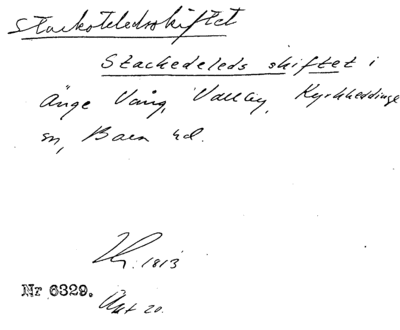 Stackoteledsskiftet
Stackedeleds skiftet i
Änge Vång, Vallby, Kyrkheddinge
sn, Bara hd.
1813
Nr 6329.
Akt 20.